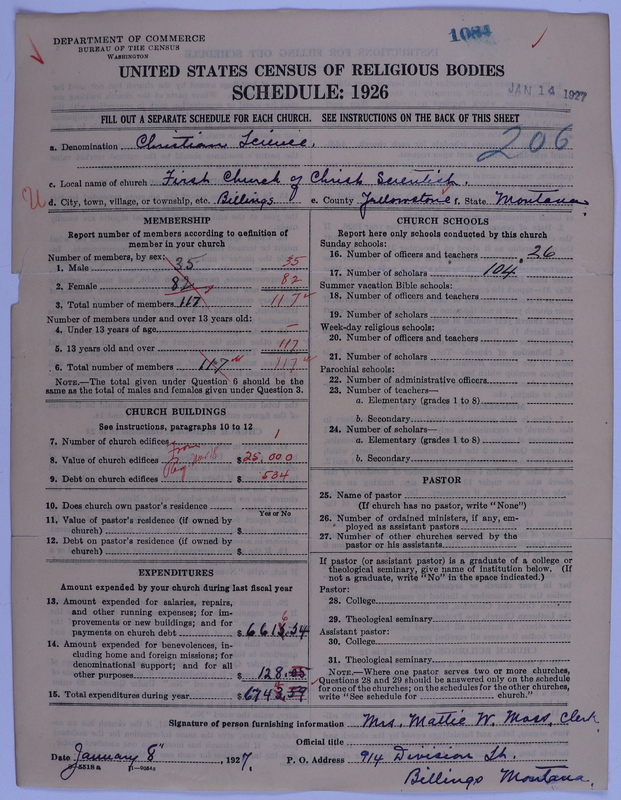 DEPARTMENT OF COMMERCE
BUREAU OF THE CENSUS
WASHINGTON
1084
UNITED STATES CENSUS OF RELIGIOUS BODIES
SCHEDULE: 1926
JAN 14 1927
FILL OUT A SEPARATE SCHEDULE FOR EACH CHURCH. SEE INSTRUCTIONS ON THE BACK OF THIS SHEET
206
a. Denomination Christian Science.
c. Local name of church First Church of Christ Scientist.
d. City, town, village, or township, etc. Billings e. County Yellowstone f. State Montana
MEMBERSHIP
Report number of members according to definition of
member in your church
Number of members, by sex:
1. Male 35 35
2. Female 82 82
3. Total number of members 117 117
Number of members under and over 13 years old:
4. Under 13 years of age —
5. 13 years old and over 117
6. Total number of members 117 117
NOTE.—The total given under Question 6 should be the
same as the total of males and females given under Question 3.
CHURCH BUILDINGS
See instructions, paragraphs 10 to 12
7. Number of church edifices 1
From
8. Value of church edifices $25,000
9. Debt on church edifices $ 534
10. Does church own pastor's residence
Yes or No
11. Value of pastor's residence (if owned by
church) $
12. Debt on pastor's residence (if owned by
church) $
EXPENDITURES
Amount expended by your church during last fiscal year
13. Amount expended for salaries, repairs,
and other running expenses; for im-
provements or new buildings; and for
payments on church debt $6615.34
6
14. Amount expended for benevolences, in-
cluding home and foreign missions; for
denominational support; and for all
other purposes 128.05
15. Total expenditures during year $6743.39
CHURCH SCHOOLS
Report here only schools conducted by this church
Sunday schools:
16. Number of officers and teachers 26
17. Number of scholars 104
Summer vacation Bible schools:
18. Number of officers and teachers
19. Number of scholars
Week-day religious schools:
20. Number of officers and teachers
21. Number of scholars
Parochial schools:
22. Number of administrative officers
23. Number of teachers—
a. Elementary (grades 1 to 8)
b. Secondary
24. Number of scholars—
a. Elementary (grades 1 to 8)
b. Secondary
PASTOR
25. Name of pastor
(If church has no pastor, write "None")
26. Number of ordained ministers, if any, em-
ployed as assistant pastors
27. Number of other churches served by the
pastor or his assistants
If pastor (or assistant pastor) is a graduate of a college or
theological seminary, give name of institution below. (If
not a graduate, write "No" in the space indicated.)
Pastor:
28. College
29. Theological seminary
Assistant pastor:
30. College
31. Theological seminary
NOTE.—Where one pastor serves two or more churches,
Questions 28 and 29 should be answered only on the schedule
for one of the churches; on the schedules for the other churches,
write "See schedule for church."
Signature of person furnishing information Mrs. Mattie W. Moss, Clerk
Official title
Date January 8", 1927. P. O. Address 914 Division St.
Billings Montana.